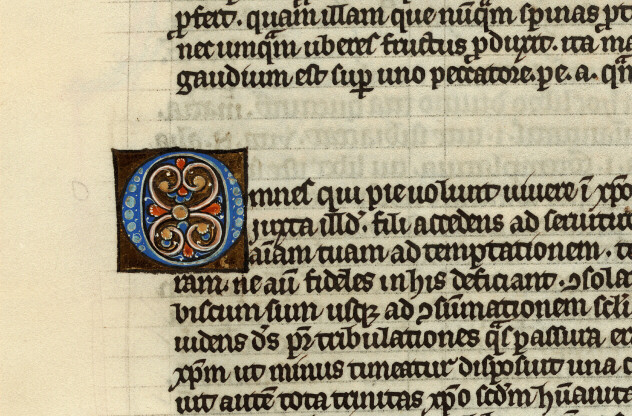 ꝑfert. quam illam que nūꝗ̃m spinas
nec umꝗ̃m uberes fructus ꝓduxit. ita
gaudium est suꝑ uno peccatore. pe. a.
Omnes qui pie uolunt uiuere ī xp̄o
iuxta illd̓. fili accedens ad seruitut
aīam tuam ad temptationem.
ram. ne aū fideles in his deficiant. ꝯsola
uiscum sum usꝗ ad ꝯsūmationem scl̓i
uidens d̄s pr̄ tribulationes ꝗ̄s passura
xp̄m ut minus timeatur disposuit una
uit autē tota trinitas xp̄o scd̄m hūanita